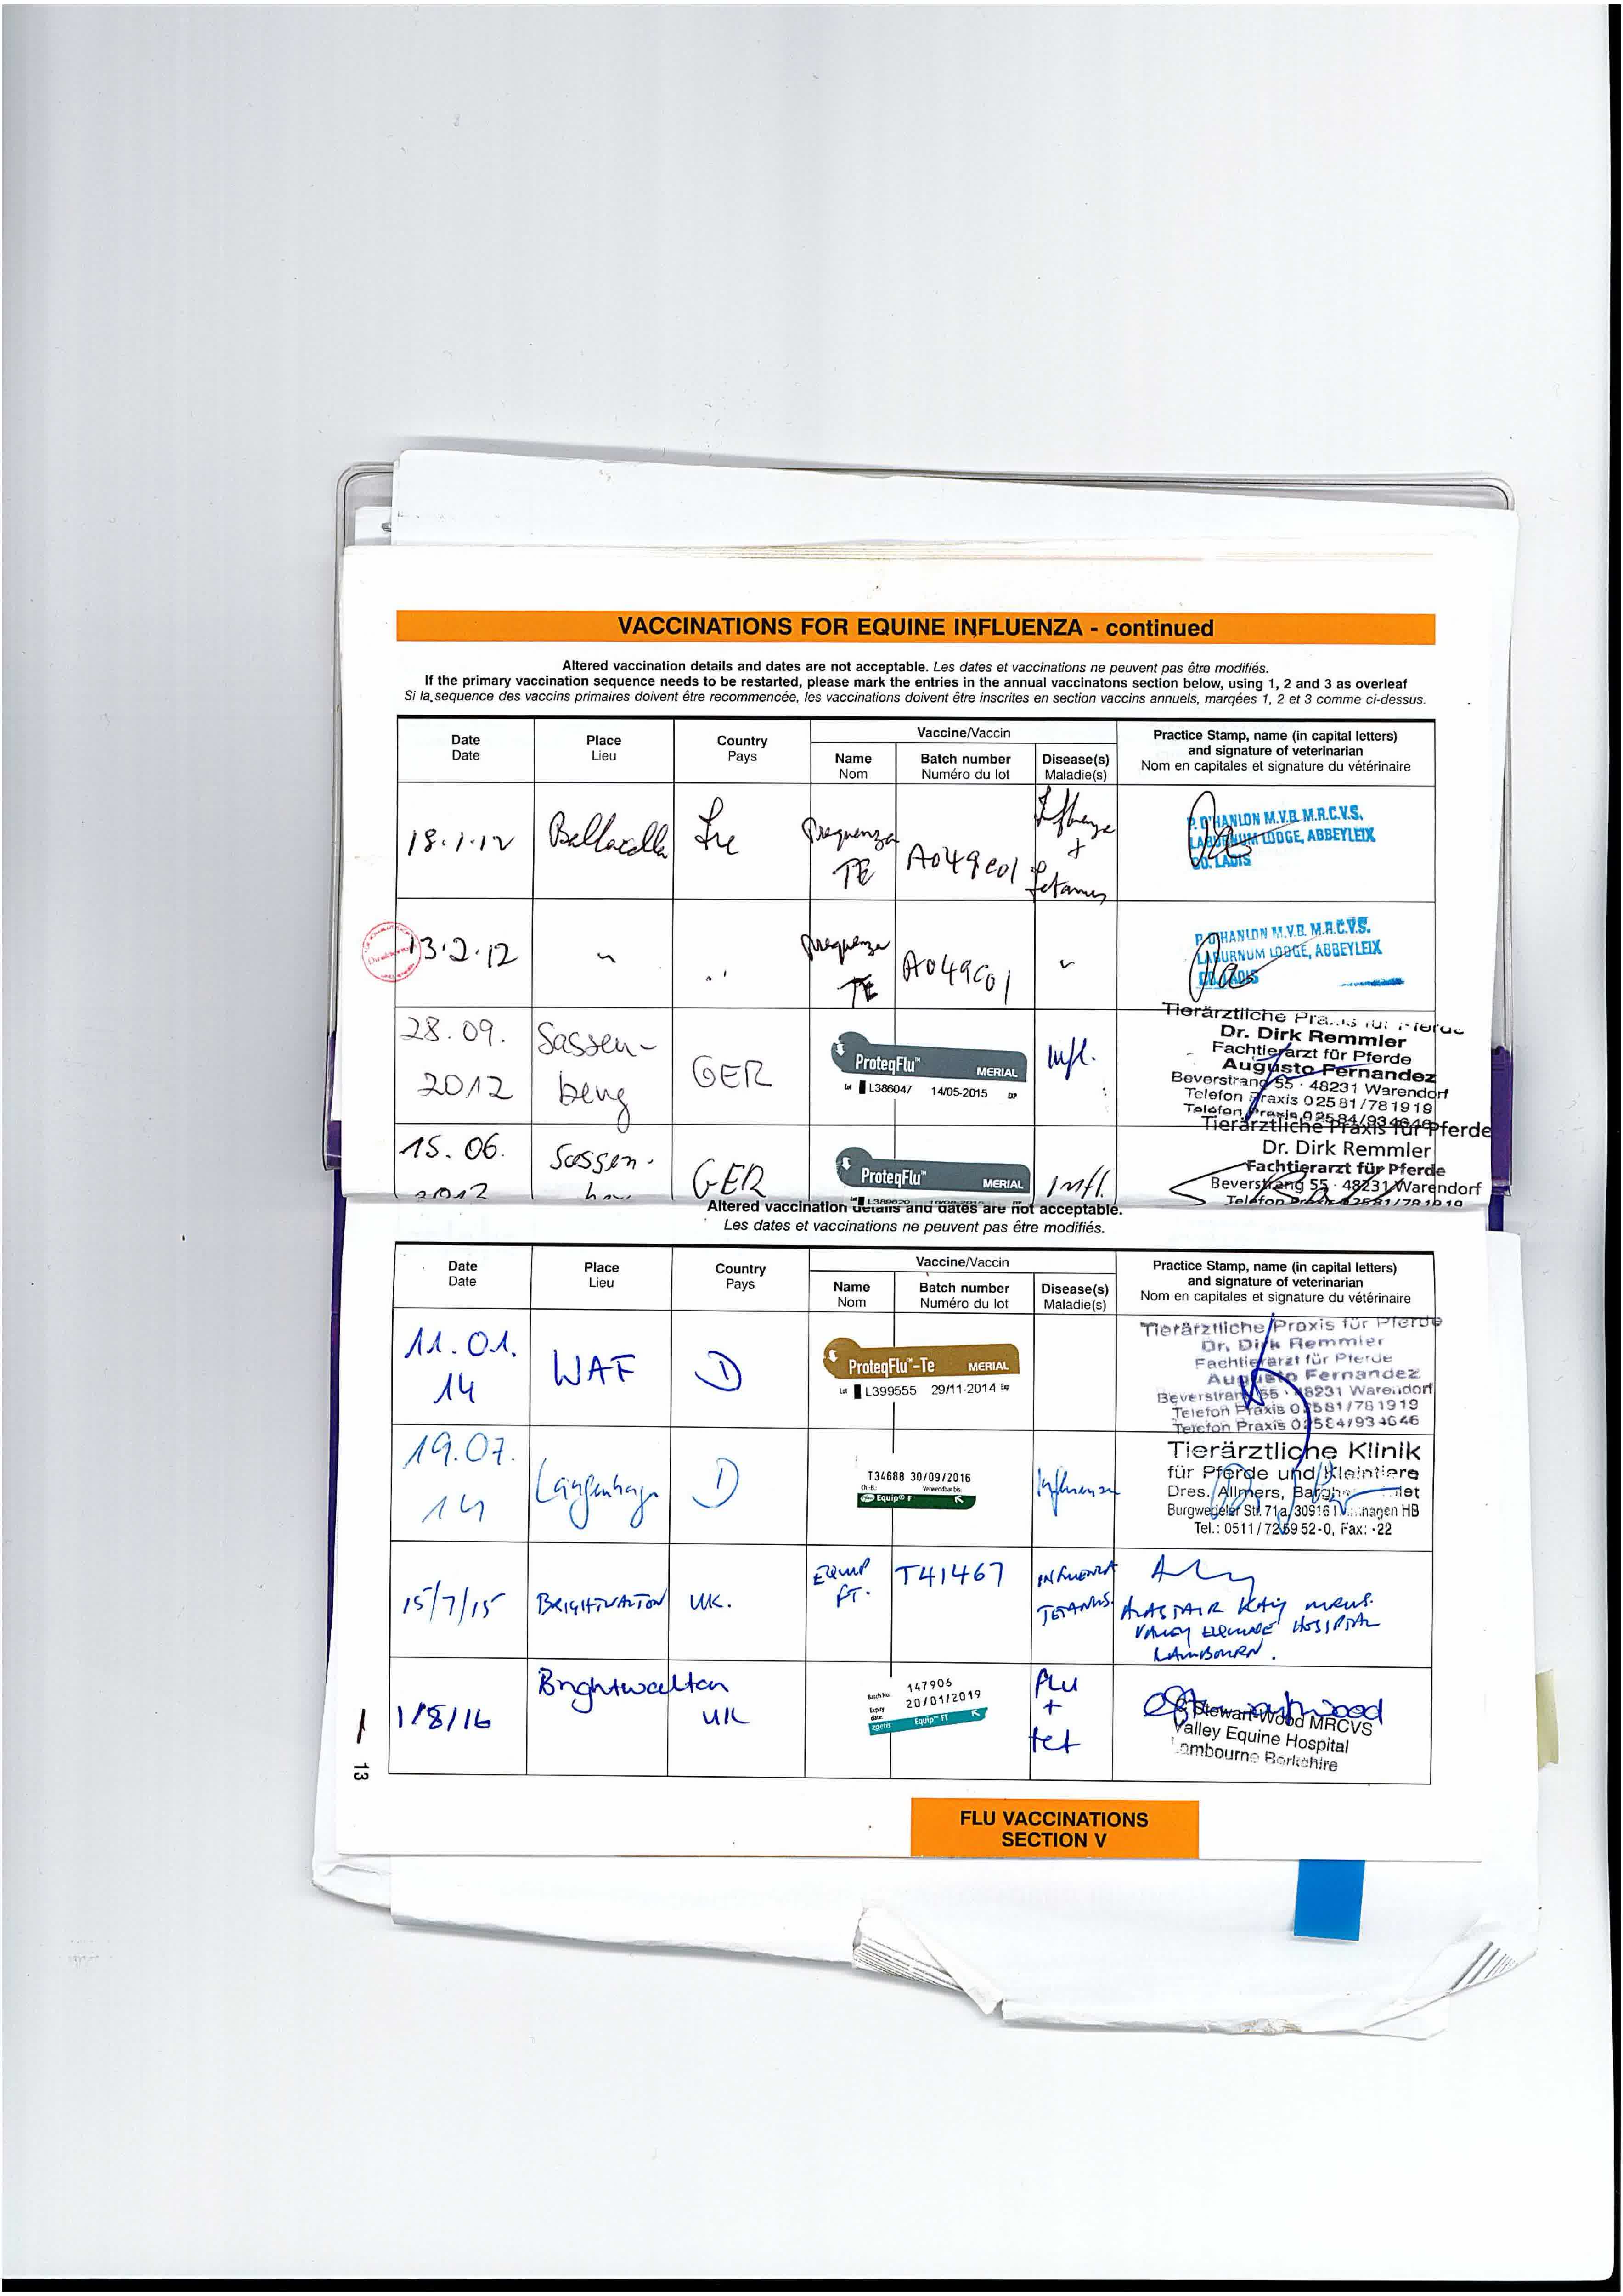 VACCINATIONS FOR EQUINE INFLUENZA - continued
Altered vaccination details and dates are not acceptable. Les dates et vaccinations ne peuvent pas être modifiés.
If the primary vaccination sequence needs to be restarted, please mark the entries in the annual vaccinatons section below, using 1, 2 and 3 as overleaf
Si la sequence des vaccins primaires doivent être recommencée, les vaccinations doivent être inscrites en section vaccins annuels, marqées 1, 2 et 3 comme ci-dessus.
Date
Date
Place
Lieu
Country
Pays
Vaccine/Vaccin
Name
Nom
Batch number
Numéro du lot
Disease(s)
Maladie(s)
Practice Stamp, name (in capital letters)
and signature of veterinarian
Nom en capitales et signature du vétérinaire
18.1.12
Ire
Prequenza
TE
A049C01
Influenza
+
Tetanus
P. O'HANLON M.V.B. M.R.C.V.S.
LABURNUM LODGE, ABBEYLEIX
CO. LAOIS
13.2.12
Prequenza
TE
A049C01
P. O'HANLON M.V.B. M.R.C.V.S.
LABURNUM LODGE, ABBEYLEIX
CO. LAOIS
28.09.
2012
Sassen-
berg
GER
ProteqFlu™
MERIAL
Lot L386047 14/05-2015 EXP
Infl.
Tierärztliche Praxis für Pferde
Dr. Dirk Remmler
Fachtierarzt für Pferde
Augusto Fernandez
Beverstrang 55 · 48231 Warendorf
Telefon Praxis 02581/781919
Telefon Praxis 02584/934646
15.06.
Sassen-
GER
ProteqFlu™
MERIAL
Infl.
Tierärztliche Praxis für Pferde
Dr. Dirk Remmler
Fachtierarzt für Pferde
Beverstrang 55 · 48231 Warendorf
Telefon Praxis 02581/781919
Altered vaccination details and dates are not acceptable.
Les dates et vaccinations ne peuvent pas être modifiés.
Date
Date
Place
Lieu
Country
Pays
Vaccine/Vaccin
Name
Nom
Batch number
Numéro du lot
Disease(s)
Maladie(s)
Practice Stamp, name (in capital letters)
and signature of veterinarian
Nom en capitales et signature du vétérinaire
11.01.
14
WAF
D
ProteqFlu™-Te
MERIAL
Lot L399555 29/11-2014 Exp
Tierärztliche Praxis für Pferde
Dr. Dirk Remmler
Fachtierarzt für Pferde
Augusto Fernandez
Beverstrang 55 · 48231 Warendorf
Telefon Praxis 02581/781919
Telefon Praxis 02584/934646
19.07.
14
Langenhagen
D
T34688 30/09/2016
Ch.-B.: Verwendbar bis:
Equip® F
Influenza
Tierärztliche Klinik
für Pferde und Kleintiere
Dres. Allmers,
Burgwedeler Str. 71a/30916
Tel.: 0511/725952-0, Fax: -22
15/7/15
BRIGHTWALTON
UK.
EQUIP
FT.
T41467
INFLUENZA
TETANUS.
ALASTAIR KAY MRCVS.
VALLEY EQUINE HOSPITAL
LAMBOURN.
1/8/16
Brightwalton
UK
Batch No: 147906
Expiry date: 20/01/2019
zoetis Equip™ FT
Flu
+
tet
Stewart-Wood MRCVS
Valley Equine Hospital
Lambourne Berkshire
13
FLU VACCINATIONS
SECTION V